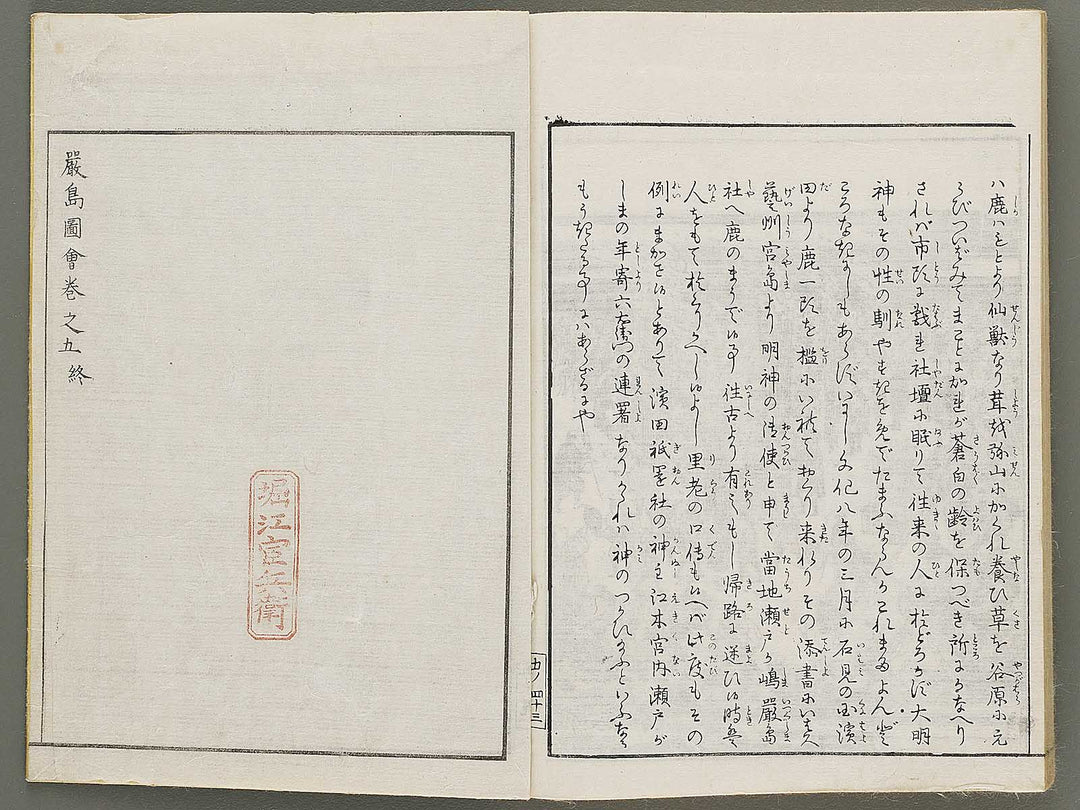 ハ鹿ハもとより仙獣なり茸或弥山にかくれ養ひ草を谷原に元
らびついばみてまことにかれが蒼白の齢を保つべき所にかなへり
されバ市頭に戯れ社壇に眠りて往来の人におどろかず大明
神もその性の馴やすきを免でたまふならんかこれまたよん
ころなきにしもあらずいにし文化八年の三月に石見の国濱
田より鹿一頭を檻にい於ておくり来れりその添書にいはく
藝州宮島より明神の御使と申て當地瀬戸ヶ嶋嚴島
社へ鹿のまうでゆ事往古より有之もし帰路に迷ひゆ時は
人をもておくりかへしゆよし里老の口傳もゆへバ此度もその
例にまかせゆとありて濱田祇園社の神主江木宮内瀬戸が
しまの年寄六右衛門の連署なりけれハ神のつかひ給ふといふなる
もうきたる事にハあらざるにや
四ノ四十三
嚴島圖會巻之五終
堀江宦兵衛